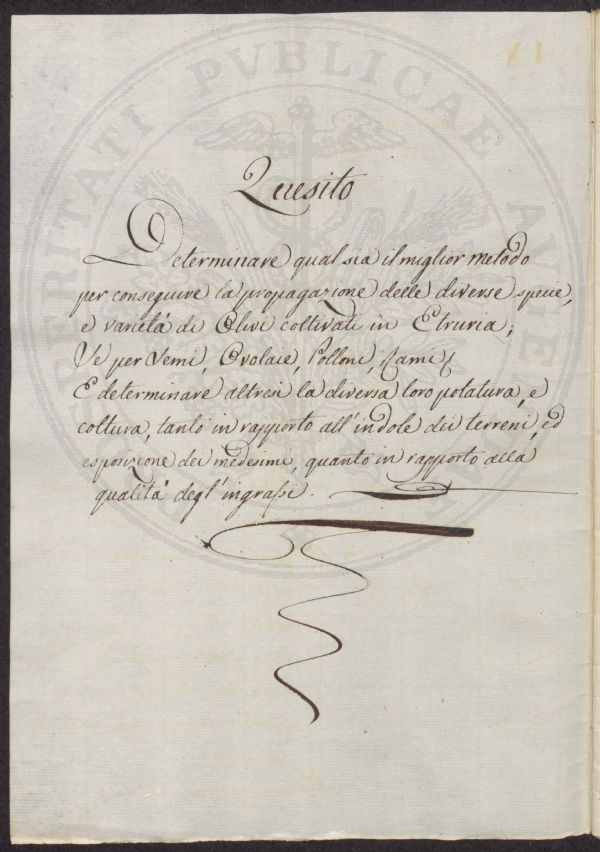 PROSPERITATI PVBLICAE AVGENDAE
Quesito
Determinare qual sia il miglior metodo
per conseguire la propagazione delle diverse specie,
e varietà di Olivi coltivati in Etruria;
Se per Semi, Ovolaie, Polloni, Rami;
E determinare altresì la diversa loro potatura, e
coltura, tanto in rapporto all'indole dei terreni, ed
esposizione dei medesimi, quanto in rapporto alla
qualità degl'ingrassi.